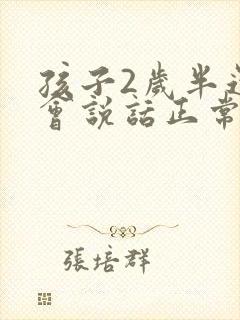 孩子2歲半還
會說話正常
張培群